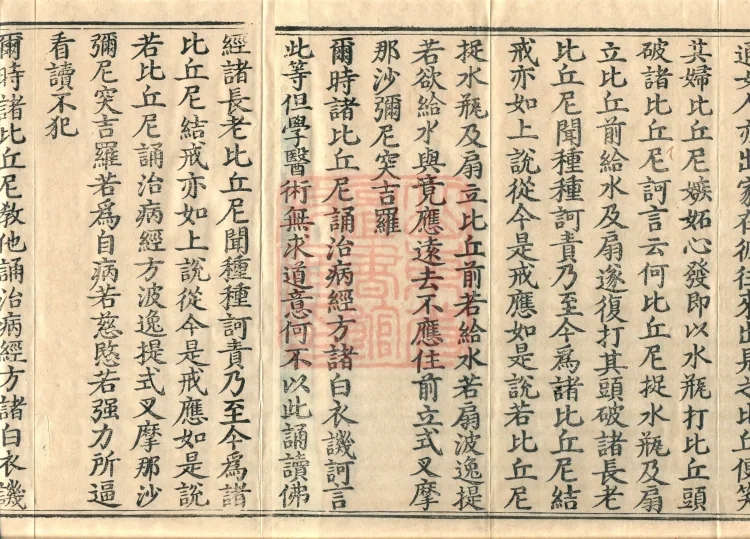 女人亦出家在彼見之比丘便笑
其婦比丘尼嫉妬心發即以水瓶打比丘頭
破諸比丘尼訶言云何比丘尼捉水瓶及扇
立比丘前給水及扇遂復打其頭破諸長老
比丘尼聞種種訶責乃至今爲諸比丘尼結
戒亦如上說從今是戒應如是說若比丘尼
捉水瓶及扇立比丘前若給水若扇波逸提
若欲給水與竟應遠去不應住前立式叉摩
那沙彌尼突吉羅
爾時諸比丘尼誦治病經方諸白衣譏訶言
此等但學醫術無求道意何不以此誦讀佛
經諸長老比丘尼聞種種訶責乃至今爲諸
比丘尼結戒亦如上說從今是戒應如是說
若比丘尼誦治病經方波逸提式叉摩那沙
彌尼突吉羅若爲自病若慈愍若强力所逼
看讀不犯
爾時諸比丘尼教他誦治病經方諸白衣譏